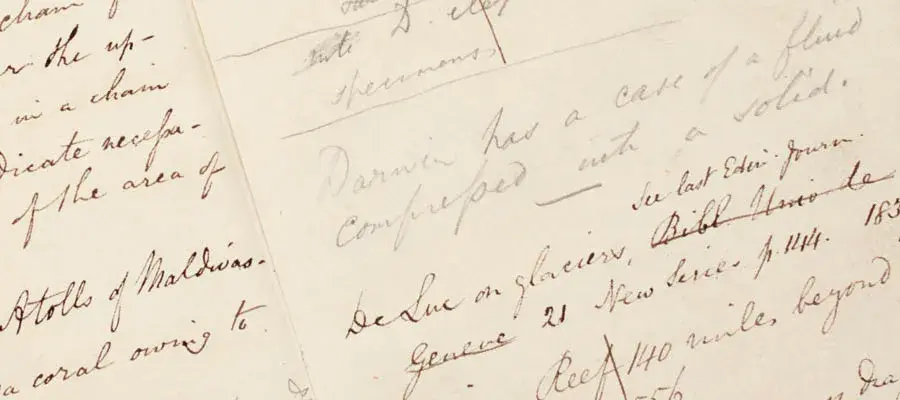 cham
r the up-
in a cham
dicate necessa-
of the area of
Atolls of Maldivas.
a coral owing to
D.
specimens
Darwin has a case of a fluid
compressed into a solid.
See last Edin. Journ.
De Luc on glaciers, Bibl. Univ. de
Geneve 21 New Series p. 144. 183
Reef 140 miles beyond
56